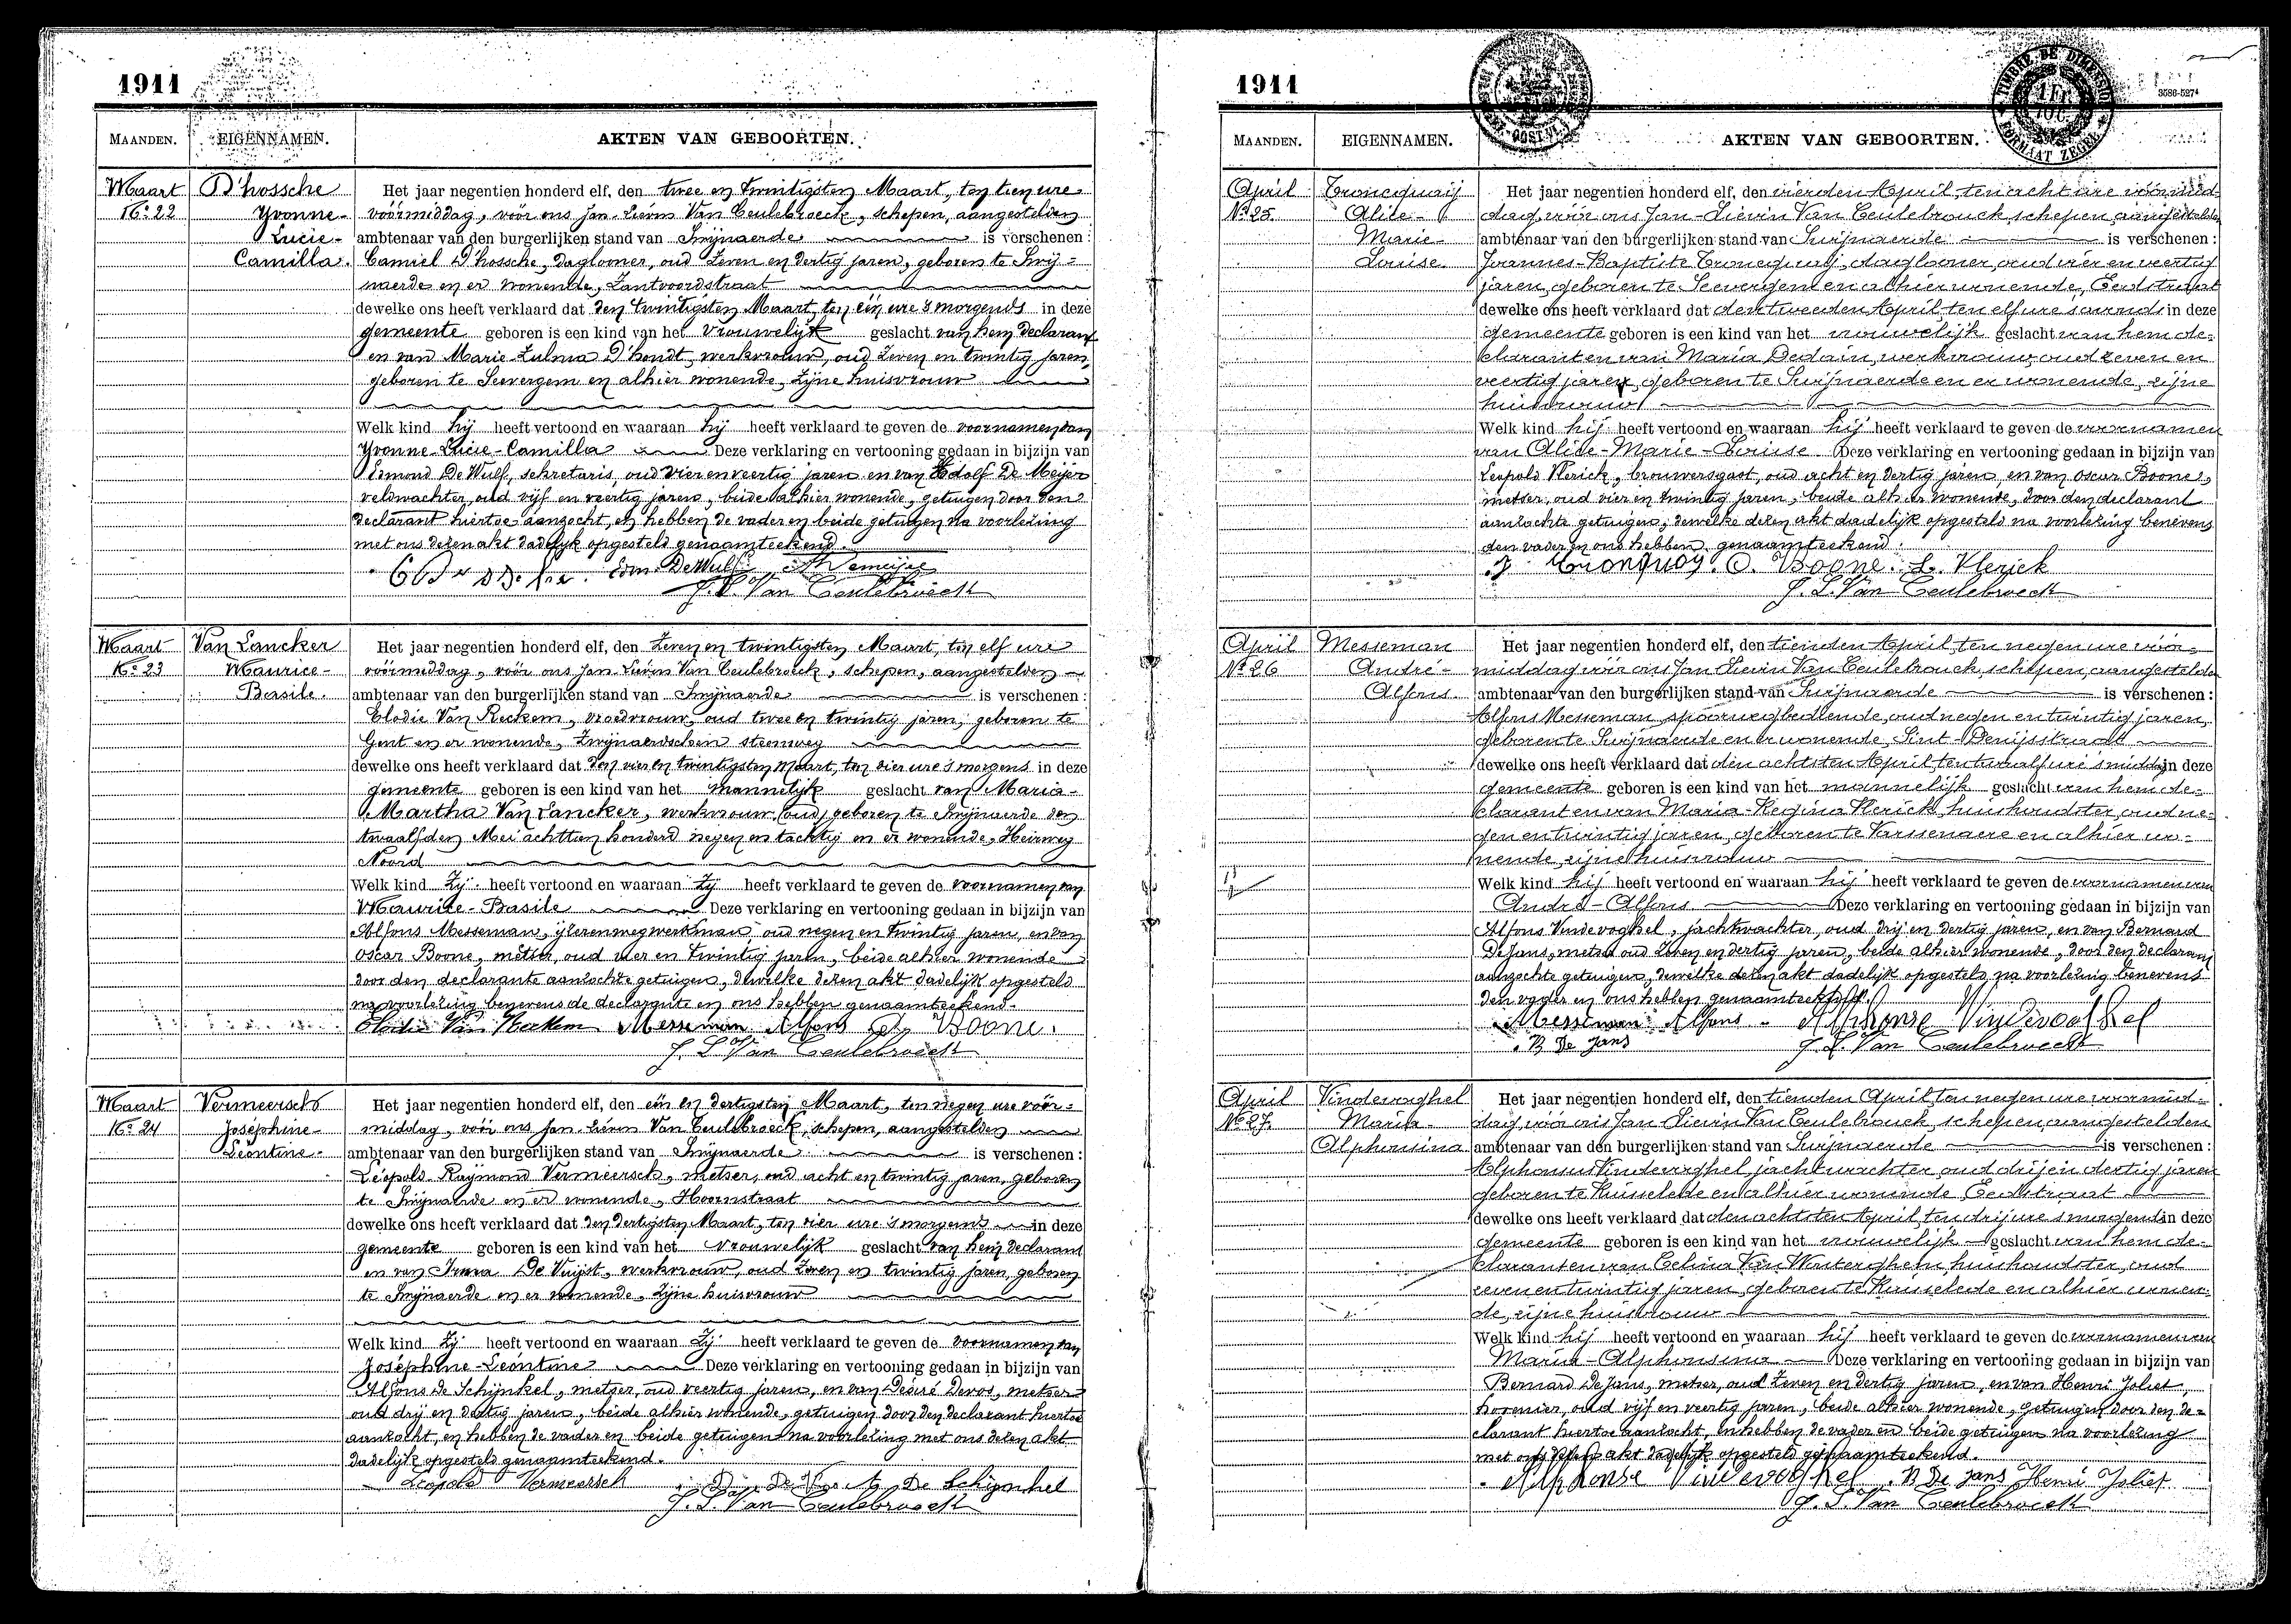 1911
MAANDEN. EIGENNAMEN. AKTEN VAN GEBOORTEN.
Maart D'hossche Het jaar negentien honderd elf, den twee en twintigsten Maart, ten tien ure
No 22 Yvonne- vóórmiddag, vóór ons Jan Lievin Van Ceulebroeck, schepen, aangestelden
Lucie- ambtenaar van den burgerlijken stand van Swijnaerde is verschenen:
Camilla. Camiel D'hossche, daglooner, oud zeven en dertig jaren, geboren te Swij-
naerde en er wonende, Zantvoordstraat
dewelke ons heeft verklaard dat den twintigsten Maart, ten één ure 's morgends in deze
gemeente geboren is een kind van het vrouwelijk geslacht van hem declarant
en van Marie Zulma D'hondt, werkvrouw, oud zeven en twintig jaren,
geboren te Seevergem en alhier wonende, zijne huisvrouw
Welk kind hij heeft vertoond en waaraan hij heeft verklaard te geven de voornamen van
Yvonne-Lucie-Camilla Deze verklaring en vertooning gedaan in bijzijn van
Edmond De Wulf, sekretaris, oud vier en veertig jaren en van Adolf De Meijer
veldwachter, oud vijf en veertig jaren, beide alhier wonende, getuigen door den
declarant hiertoe aanzocht, en hebben de vader en beide getuigen na voorlezing
met ons dezen akt dadelijk opgesteld genaamteekend.
Edm. DeWulf
J. L. Van Ceulebroeck
Maart Van Lancker Het jaar negentien honderd elf, den zeven en twintigsten Maart, ten elf ure
No 23 Maurice- vóórmiddag, vóór ons Jan Lievin Van Ceulebroeck, schepen, aangestelden
Basile. ambtenaar van den burgerlijken stand van Swijnaerde is verschenen:
Elodie Van Reckem, vroedvrouw, oud twee en twintig jaren, geboren te
Gent en er wonende, Zwijnaerdschen steenweg
dewelke ons heeft verklaard dat den vier en twintigsten Maart, ten vier ure 's morgens in deze
gemeente geboren is een kind van het mannelijk geslacht van Maria-
Martha Van Lancker, werkvrouw, oud, geboren te Swijnaerde den
twaalfden Mei achttien honderd negen en tachtig en er wonende, Heirweg
Noord
Welk kind zij heeft vertoond en waaraan zij heeft verklaard te geven de voornamen van
Maurice-Basile Deze verklaring en vertooning gedaan in bijzijn van
Alfons Messeman, ijzerenwegwerkman oud negen en twintig jaren, en van
Oscar Boone, metser, oud vier en twintig jaren, beide alhier wonende
door den declarante aanzochte getuigen, dewelke dezen akt dadelijk opgesteld
na voorlezing benevens de declarante en ons hebben genaamteekend.
Elodie Van Reckem Messeman Alfons O. Boone.
J. L. Van Ceulebroeck
Maart Vermeersch Het jaar negentien honderd elf, den één en dertigsten Maart, ten negen ure vóór-
No 24 Joséphine- middag, vóór ons Jan Lievin Van Ceulebroeck, schepen, aangestelden
Léontine. ambtenaar van den burgerlijken stand van Swijnaerde is verschenen:
Léopold Raymond Vermeersch, metser, oud acht en twintig jaren, geboren
te Swijnaerde en er wonende, Hoornstraat
dewelke ons heeft verklaard dat den dertigsten Maart, ten vier ure 's morgends in deze
gemeente geboren is een kind van het vrouwelijk geslacht van hem declarant
en van Irma De Vuijst, werkvrouw, oud zeven en twintig jaren, geboren
te Swijnaerde en er wonende, zijne huisvrouw
Welk kind zij heeft vertoond en waaraan zij heeft verklaard te geven de voornamen van
Joséphine-Léontine Deze verklaring en vertooning gedaan in bijzijn van
Alfons De Schijnkel, metser, oud veertig jaren, en van Désiré Devos, metser
oud drij en dertig jaren, beide alhier wonende, getuigen door den declarant hiertoe
aanzocht, en hebben de vader en beide getuigen na voorlezing met ons dezen akt
dadelijk opgesteld genaamteekend.
Leopold Vermeersch De Schijnkel
J. L. Van Ceulebroeck
1911
TIMBRE DE DIMENSION
FORMAAT ZEGEL
3586-5274
MAANDEN. EIGENNAMEN. AKTEN VAN GEBOORTEN.
April Troncquaij Het jaar negentien honderd elf, den vierden April, ten acht ure vóórmid-
No 25. Alice- dag, vóór ons Jan-Lievin Van Ceulebrouck schepen aangestelden
Marie- ambtenaar van den burgerlijken stand van Swijnaerde is verschenen:
Louise. Joannes-Baptiste Troncquaij, daglooner, oud vier en veertig
jaren, geboren te Seevergem en alhier wonende, Eedstraat
dewelke ons heeft verklaard dat den tweeden April ten elf ure 's avonds in deze
gemeente geboren is een kind van het vrouwelijk geslacht van hem de-
clarant en van Maria Dedain, werkvrouw, oud zeven en
veertig jaren, geboren te Swijnaerde en er wonende, zijne
huisvrouw
Welk kind hij heeft vertoond en waaraan hij heeft verklaard te geven de voornamen
van Alice-Marie-Louise Deze verklaring en vertooning gedaan in bijzijn van
Leopold Vlerick, brouwersgast, oud acht en dertig jaren, en van Oscar Boone,
metser, oud vier en twintig jaren, beide alhier wonende, door den declarant
aanzochte getuigen, dewelke dezen akt dadelijk opgesteld na voorlezing benevens
den vader en ons hebben genaamteekend.
J. Tronquoy. O. Boone. L. Vlerick
J. L. Van Ceulebroeck
April Messeman Het jaar negentien honderd elf, den tienden April, ten negen ure vóór-
No 26 André- middag vóór ons Jan Lievin Van Ceulebrouck, schepen, aangestelden
Alfons. ambtenaar van den burgerlijken stand van Swijnaerde is verschenen:
Alfons Messeman, spoorwegbediende, oud negen en twintig jaren,
geboren te Swijnaerde en er wonende, Sint-Denijsstraat
dewelke ons heeft verklaard dat den achtsten April ten twaalf ure 's middags in deze
gemeente geboren is een kind van het mannelijk geslacht van hem de-
clarant en van Maria-Regina Vlerick, huishoudster, oud ne-
gen en twintig jaren, geboren te Varssenaere en alhier wo-
nende, zijne huisvrouw
Welk kind hij heeft vertoond en waaraan hij heeft verklaard te geven de voornamen van
André-Alfons Deze verklaring en vertooning gedaan in bijzijn van
Alfons Vindevoghel, jachtwachter, oud drij en dertig jaren, en van Bernard
De Jans, metser oud zeven en dertig jaren, beide alhier wonende, door den declarant
aanzochte getuigen, dewelke dezen akt dadelijk opgesteld, na voorlezing benevens
den vader en ons hebben genaamteekend.
Messeman Alfons Alphonse Vindevoghel
B. De Jans J. L. Van Ceulebroeck
April Vindevoghel Het jaar negentien honderd elf, den tienden April ten negen ure voormid-
No 27. Maria- dag vóór ons Jan Lievin Van Ceulebrouck, schepen, aangestelden
Alphonsina ambtenaar van den burgerlijken stand van Swijnaerde is verschenen:
Alphonsus Vindevoghel, jachtwachter oud drij en dertig jaren
geboren te Ruisselede en alhier wonende, Eedstraat
dewelke ons heeft verklaard dat den achtsten April, ten drij ure 's morgends in deze
gemeente geboren is een kind van het vrouwelijk geslacht van hem de-
clarant en van Celina Van Wonterghem, huishoudster, oud
zeven en twintig jaren, geboren te Ruisselede en alhier wonen-
de, zijne huisvrouw
Welk kind hij heeft vertoond en waaraan hij heeft verklaard te geven de voornamen van
Maria-Alphonsina Deze verklaring en vertooning gedaan in bijzijn van
Bernard De Jans, metser, oud zeven en dertig jaren, en van Henri Joliet,
hovenier, oud vijf en veertig jaren, beide alhier wonende, getuigen door den de-
clarant hiertoe aanzocht, en hebben de vader en beide getuigen na voorlezing
met ons dezen akt dadelijk opgesteld genaamteekend.
Alphonse Vindevoghel. B De Jans Henri Joliet
J. L. Van Ceulebroeck